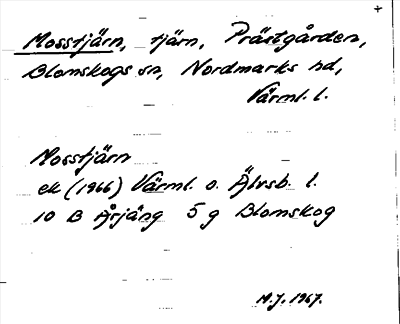 +
Mosstjärn, tjärn, Prästgården,
Blomskogs sn, Nordmarks hd,
Värml. l.
Mosstjärn
ek (1966) Värml. o. Älvsb. l.
10 B Årjäng 5 g Blomskog
M.J. 1967.